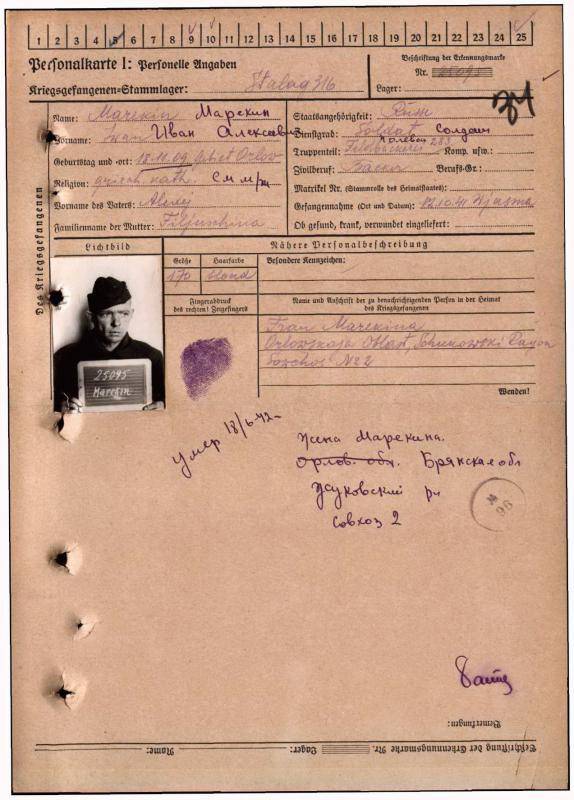 1 2 3 4 5 6 7 8 9 10 11 12 13 14 15 16 17 18 19 20 21 22 23 24 25
Personalkarte I: Personelle Angaben
Beschriftung der Erkennungsmarke
Nr. 25095
Kriegsgefangenen-Stammlager: Stalag 316
Lager:
Des Kriegsgefangenen
Name: Marekin Марекин
Vorname: Iwan Иван Алексеевич
Geburtstag und -ort: 18.11.09. Orlow
Religion: griech. kath.
Vorname des Vaters: Alexej
Familienname der Mutter: Filjuschina
Staatsangehörigkeit: Russe
Dienstgrad: Soldat солдат
Truppenteil: 283 Komp. usw.:
Zivilberuf: Berufs-Gr.:
Matrikel Nr. (Stammrolle des Heimatstaates):
Gefangennahme (Ort und Datum): 12.10.41 Wjasma
Ob gesund, krank, verwundet eingeliefert:
Lichtbild
Nähere Personalbeschreibung
Größe
170
Haarfarbe
blond
Besondere Kennzeichen:
Fingerabdruck
des rechten! Zeigefingers
Name und Anschrift der zu benachrichtigenden Person in der Heimat
des Kriegsgefangenen
Frau Marekina
Orlowskaja Oblast, Schukowski Rayon
Sowchos N2
Wenden!
25095
Marekin
умер 18/6-42-
Жена Марекина.
Орлов. обл. Брянская обл
Жуковский рн
Совхоз 2
96
Bemerkungen:
Beschriftung der Erkennungsmarke Nr. Lager: Name: